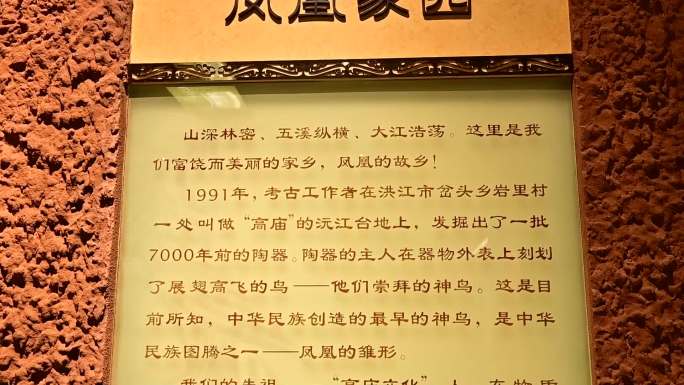 凤凰家园
山深林密、五溪纵横、大江浩荡。这里是我
们富饶而美丽的家乡，凤凰的故乡！
1991年，考古工作者在洪江市岔头乡岩里村
一处叫做“高庙”的沅江台地上，发掘出了一批
7000年前的陶器。陶器的主人在器物外表上刻划
了展翅高飞的鸟——他们崇拜的神鸟。这是目
前所知，中华民族创造的最早的神鸟，是中华
民族图腾之一——凤凰的雏形。
我们的先祖——“高庙文化”人，在物质